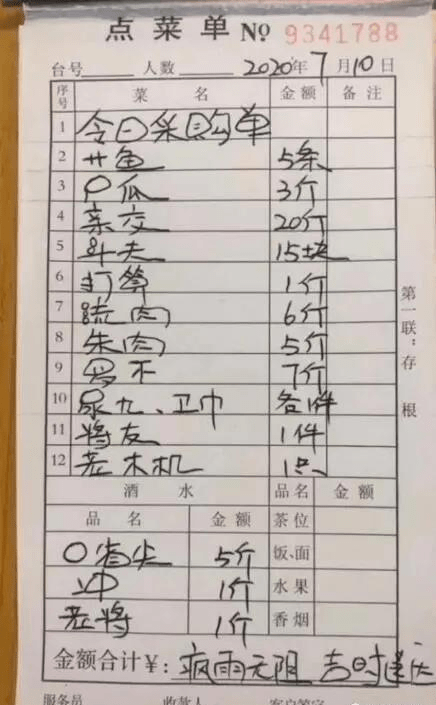 点菜单 № 9341788
台号 人数 2020年7月10日
序号 菜名 金额 备注
1 今日采购单
2 廿鱼 5条
3 〇瓜 3斤
4 亲交 20斤
5 斗夫 15块
6 打算 1斤
7 跣肉 6斤
8 朱肉 5斤
9 罗不 7斤
10 尿九、卫巾 各1件
11 将友 1件
12 老木机 1只
第一联:存根
酒水 品名 金额
品名 金额 茶位
〇省尖 5斤 饭、面
冲 1斤 水果
老将 1斤 香烟
金额合计¥: 疯雨无阻 吉时送达
服务员 收款人 客户签字